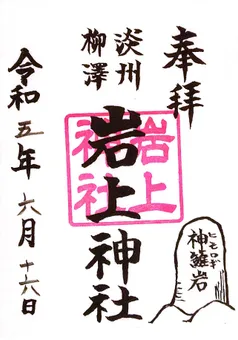 奉拝
淡州
柳澤
岩上神社
岩上
神社
ヒモロギ
神籬岩
令和五年六月十六日